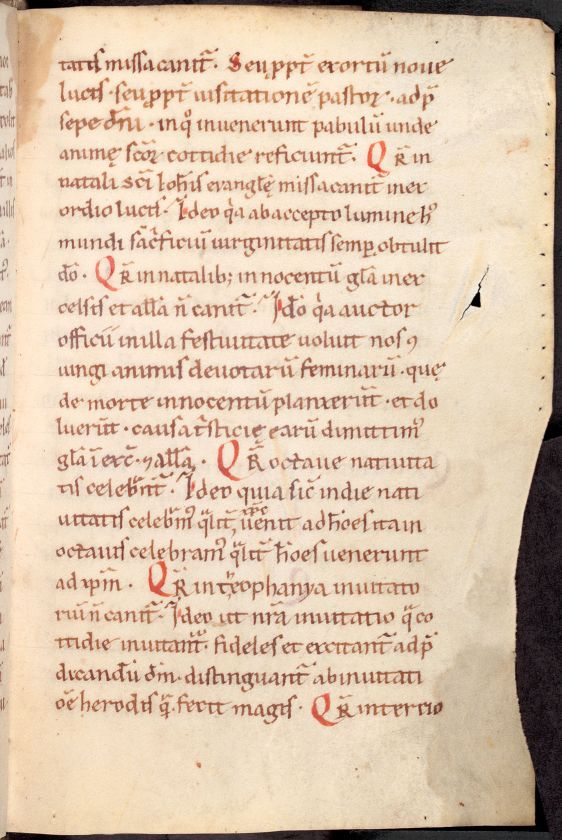 tatis missa canit̄. Seu ꝓpt̄ exortū noue
lucis. seu ꝓpt̄ uisitationē pastoꝝ. ad p̄
sepe dn̄i. in qͦ inuenerunt pabulū unde
animę sc̄oꝝ cottidie reficiunt̄. Q R̄ in
natali sc̄i Ioh̄is euanglę̄ missa canit̄ in ex
ordio lucis. Ideo qͣa ab accepto lumine hͦ
mundi sac̄ficiū uirginitatis semp̱ obtulit
dō. Q R̄ in natalib; innocentū gl̄a in ex
celsis et all̄a n̄ canit̄. Idō qͣa auctor
officii in illa festiuitate uoluit nos ꝯ
iungi animis deuotarū feminarū. quę
de morte innocentū planxerūt. et do
luerūt. causa t̄sticię earū dimittimꝰ
gl̄a ī exc̄. ⁊ all̄a. Q R̄ octaue natiuita
tis celebrāt̄. Ideo quia sic̄ in die nati
uitatis celebr̄m̄ qͣlit̄ xp̄c uenit ad hōes ita in
octauis celebramꝰ qͣlit̄ hōes uenerunt
ad ip̄m. Q R̄ in theophanya inuitato
riū n̄ canit̄. Ideo ut nr̄a inuitatio qͣ co
ttidie inuitant̄ᵘʳ fideles et excitant̄ ad p̄
dicandū dm̄. distinguant̄ ab inuitati
oē herodis qͣ. fecit magis. Q R̄ in tercio